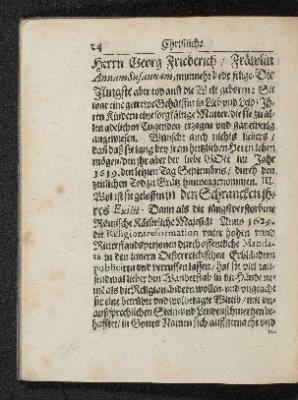 24 Christliche
Herrn Georg Friederich / Fräwlin
Annam Susannam, nunmehr bede selige. Die
Jüngste aber tod auff die Welt geboren: Sie
war eine getrewe Gehülffin in Lieb und Leyd: Ih-
ren Kindern eine sorgfältige Mutter, die sie zu al-
len adelichen Tugenden erzogen und
angewiesen. Wünscht auch nichts liebers /
dan daß sie lang bey jrem hertzlieben Herrn leben
mögen / den ihr aber der liebe GOtt im Jahr
1619. den letzten Tag Septembris / durch den
zeitlichen Tod zu Grätz hinweg genommen. III.
Wol ist sie geloffen in den Schrancken jh-
res Exilii. Dann als die jüngst verstorbene
Römische Käiserliche Majestät Anno 1629.
die Religions reformation unter hohen und
Ritterstands personen durch offentliche Manda-
ta in den innern Oesterreichischen Erbländern
publiciren und verruffen lassen / hat sie viel tau-
sendmal lieber den Wanderstab in die Hände ne-
men / als die Religion ändern wollen / und ungeacht
sie eine betrübte und wolbetagte Witib / mit un-
außsprechlichen Stein- und Lendenschmertzen be-
hafftet / in Gottes Namen sich auffgemacht und